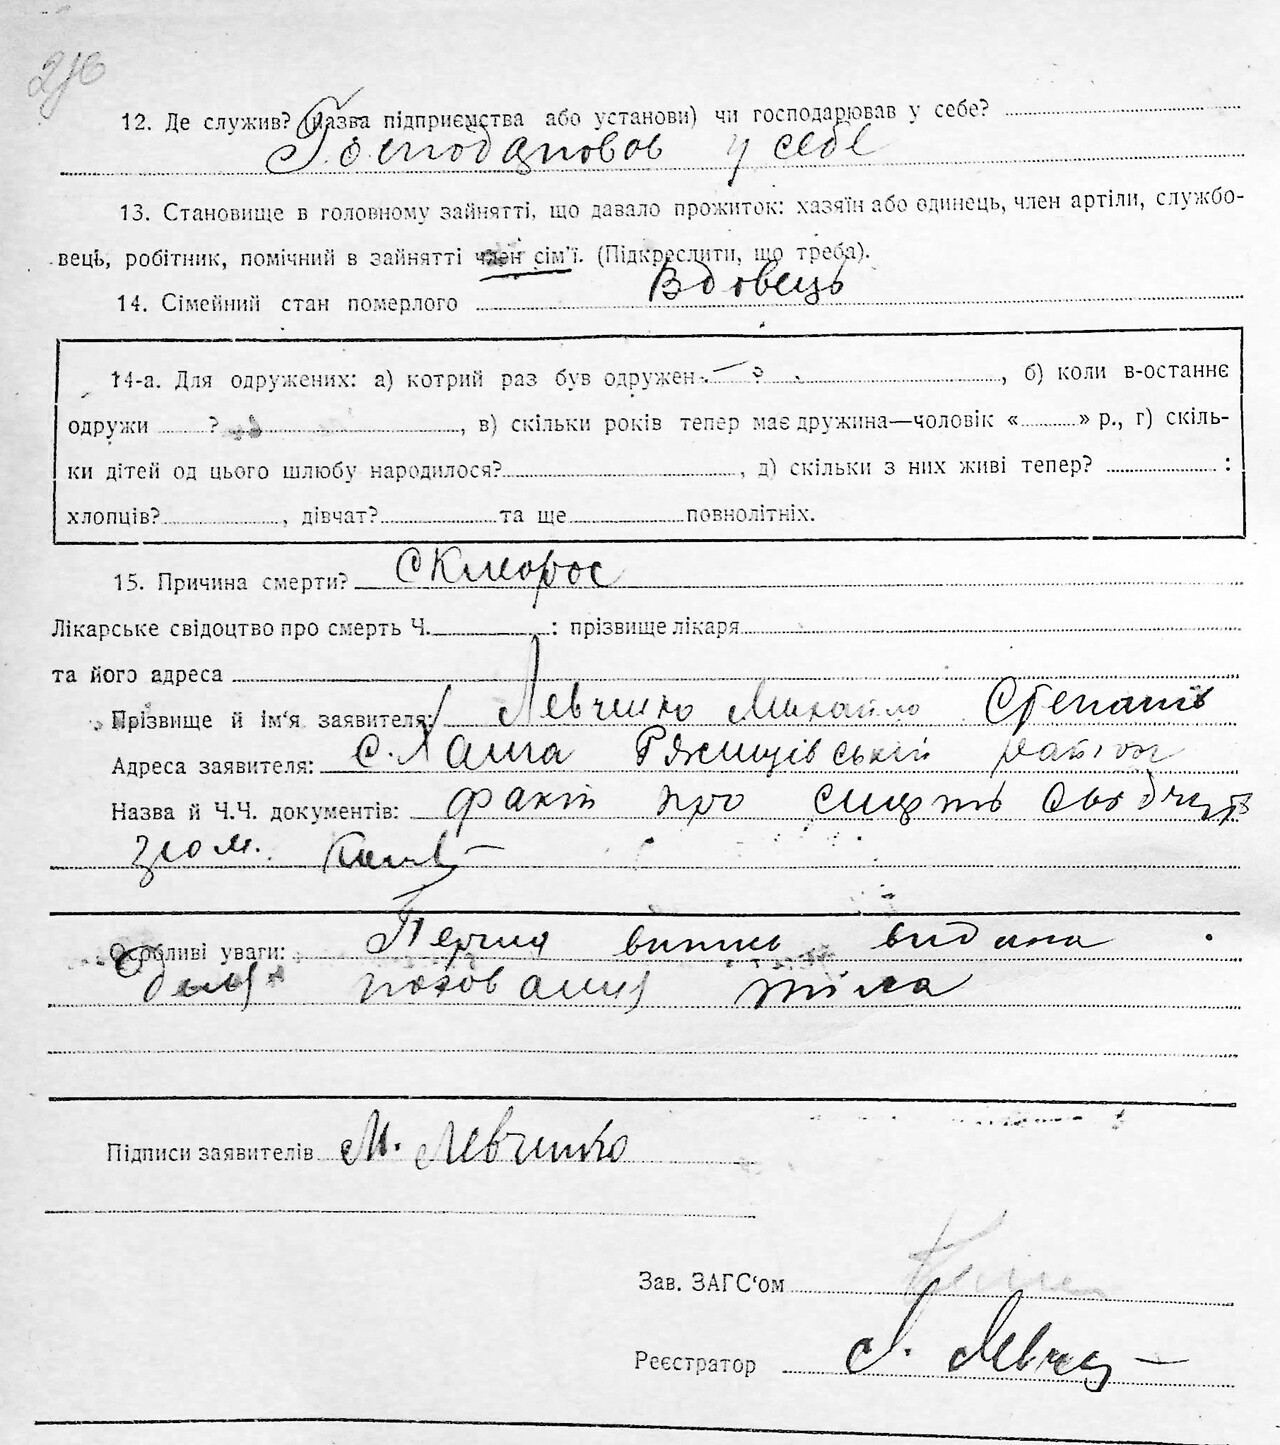 12. Де служив? (назва підприємства або установи) чи господарював у себе?
Господаровов у себе
13. Становище в головному зайнятті, що давало прожиток: хазяїн або одинець, член артіли, службо-
вець, робітник, помічний в зайнятті член сім'ї. (Підкреслити, що треба).
14. Сімейний стан померлого Вдовець
14-а. Для одружених: а) котрий раз був одружен — ? , б) коли в-останнє
одружи ? , в) скільки років тепер має дружина—чоловік « » р., г) скіль-
ки дітей од цього шлюбу народилося? , д) скільки з них живі тепер? :
хлопців? , дівчат? та ще повнолітніх.
15. Причина смерти? склероз
Лікарське свідоцтво про смерть Ч. : прізвище лікаря
та його адреса
Прізвище й ім'я заявителя: Левченко Михайло Степанів
Адреса заявителя: с. Ржищівській район
Назва й Ч.Ч. документів: факт про смерть
Особливі уваги: Перша випись видана
для поховання тіла
Підписи заявителів М. Левченко
Зав. ЗАГС'ом
Реєстратор